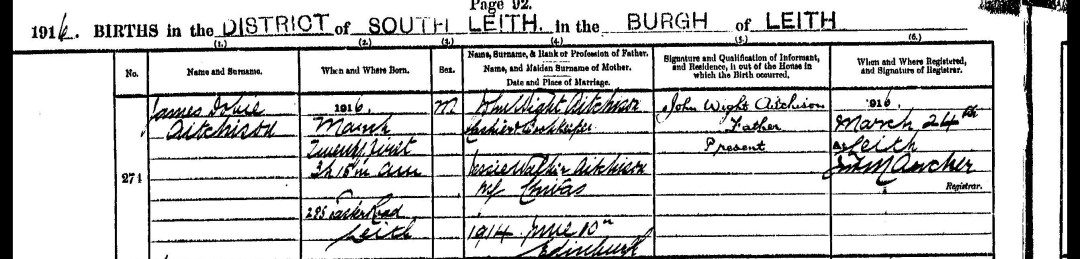 Page 92.
1916. BIRTHS in the DISTRICT of SOUTH LEITH in the BURGH of LEITH
(1.) (2.) (3.) (4.) (5.) (6.)
No.
Name and Surname.
When and Where Born.
Sex.
Name, Surname, & Rank or Profession of Father.
Name, and Maiden Surname of Mother.
Date and Place of Marriage.
Signature and Qualification of Informant,
and Residence, if out of the House in
which the Birth occurred.
When and Where Registered,
and Signature of Registrar.
271
James Dobie
Aitchison
1916.
March
Twenty first
3h 15m AM
Road
Leith
M.
John Wight Aitchison
Cashier & Bookkeeper
Jessie Aitchison
MS Chivas
1914 June 10th
Edinburgh
John Wight Aitchison
Father
Present
1916.
March 24th
At Leith
Registrar.